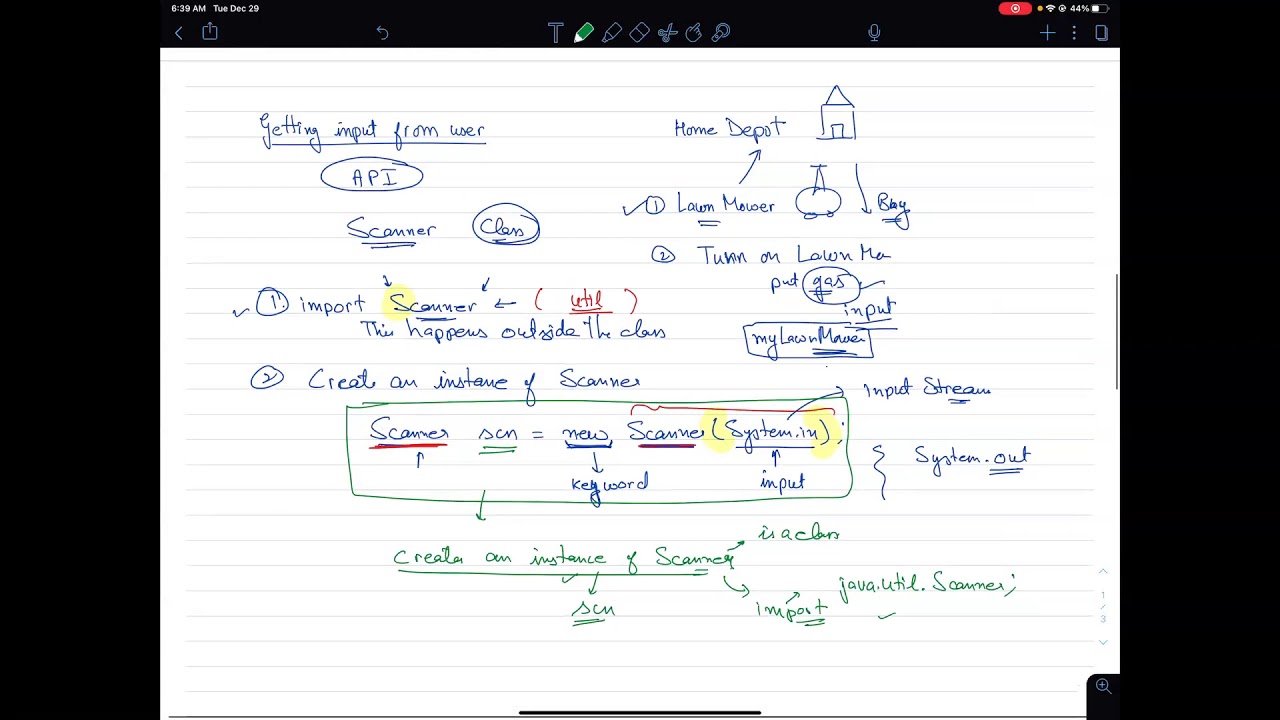 6:39 AM Tue Dec 29
44%
Getting input from user
API
Scanner Class
① import Scanner ← ( util )
This happens outside the class
② Create an instance of Scanner
Scanner scn = new Scanner(System.in);
keyword
input
Create an instance of Scanner
scn
is a class
import java.util.Scanner;
Home Depot
① Lawn Mower
Buy
② Turn on Lawn Mo
put gas
input
myLawnMower
Input Stream
System.out
1
/
3